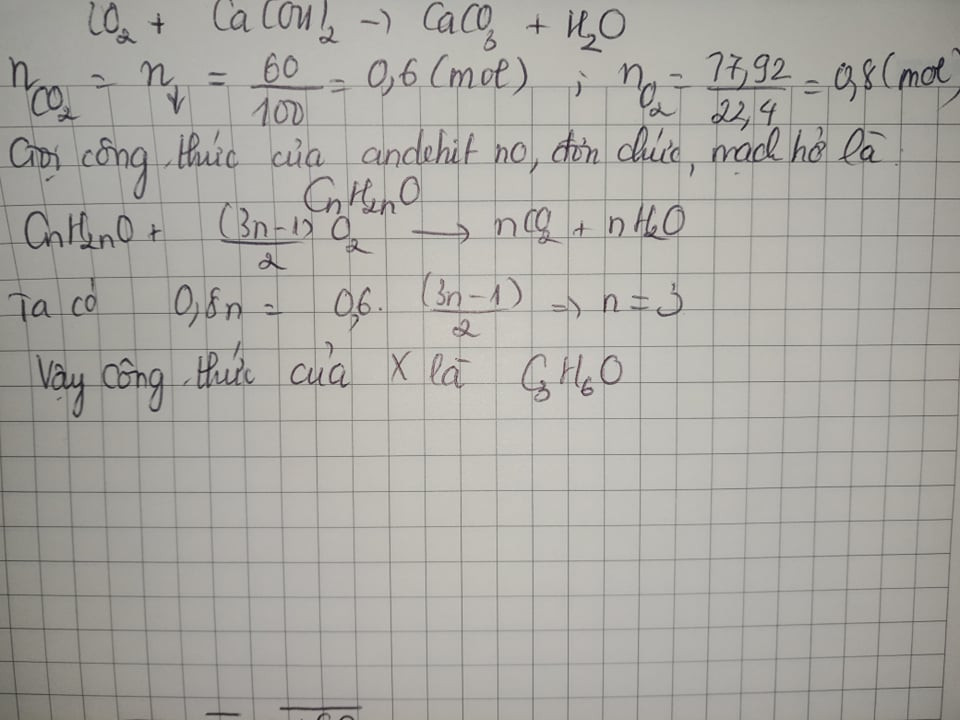 CO₂ + Ca(OH)₂ → CaCO₃ + H₂O
n_CO₂ = n↓ = 60/100 = 0,6 (mol) ; n_O₂ = 17,92/22,4 = 0,8 (mol)
Gọi công thức của andehit no, đơn chức, mạch hở là
CnH2nO
CnH2nO + (3n-1)/2 O₂ → nCO₂ + nH₂O
Ta có 0,8n = 0,6. (3n-1)/2 => n = 3
Vậy công thức của X là C₃H₆O